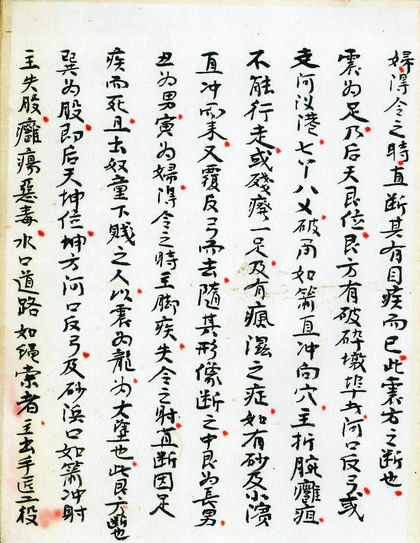 婦得令之時直断其有目疾而已此裏方之断也
震为足乃后天艮位艮方有破碎墩埠或河口反弓或
走河汊港七丫八乂破角如箭直冲向穴主折腕癱疽
不能行走或殘瘠一足及有瘋濕之症如有砂及小濱
直冲而来又覆反弓而去随其形像断之中艮为長男
丑为男寅为婦得令之時主脚疾失令之时直断因足
疾而死且出奴童下賤之人以裏为龍为大堃也此艮方断也
巽为股即后天坤位坤方河口反弓及砂浜口如箭冲射
主失股癱瘍惡毒水口道路如绳索者主出手医工役